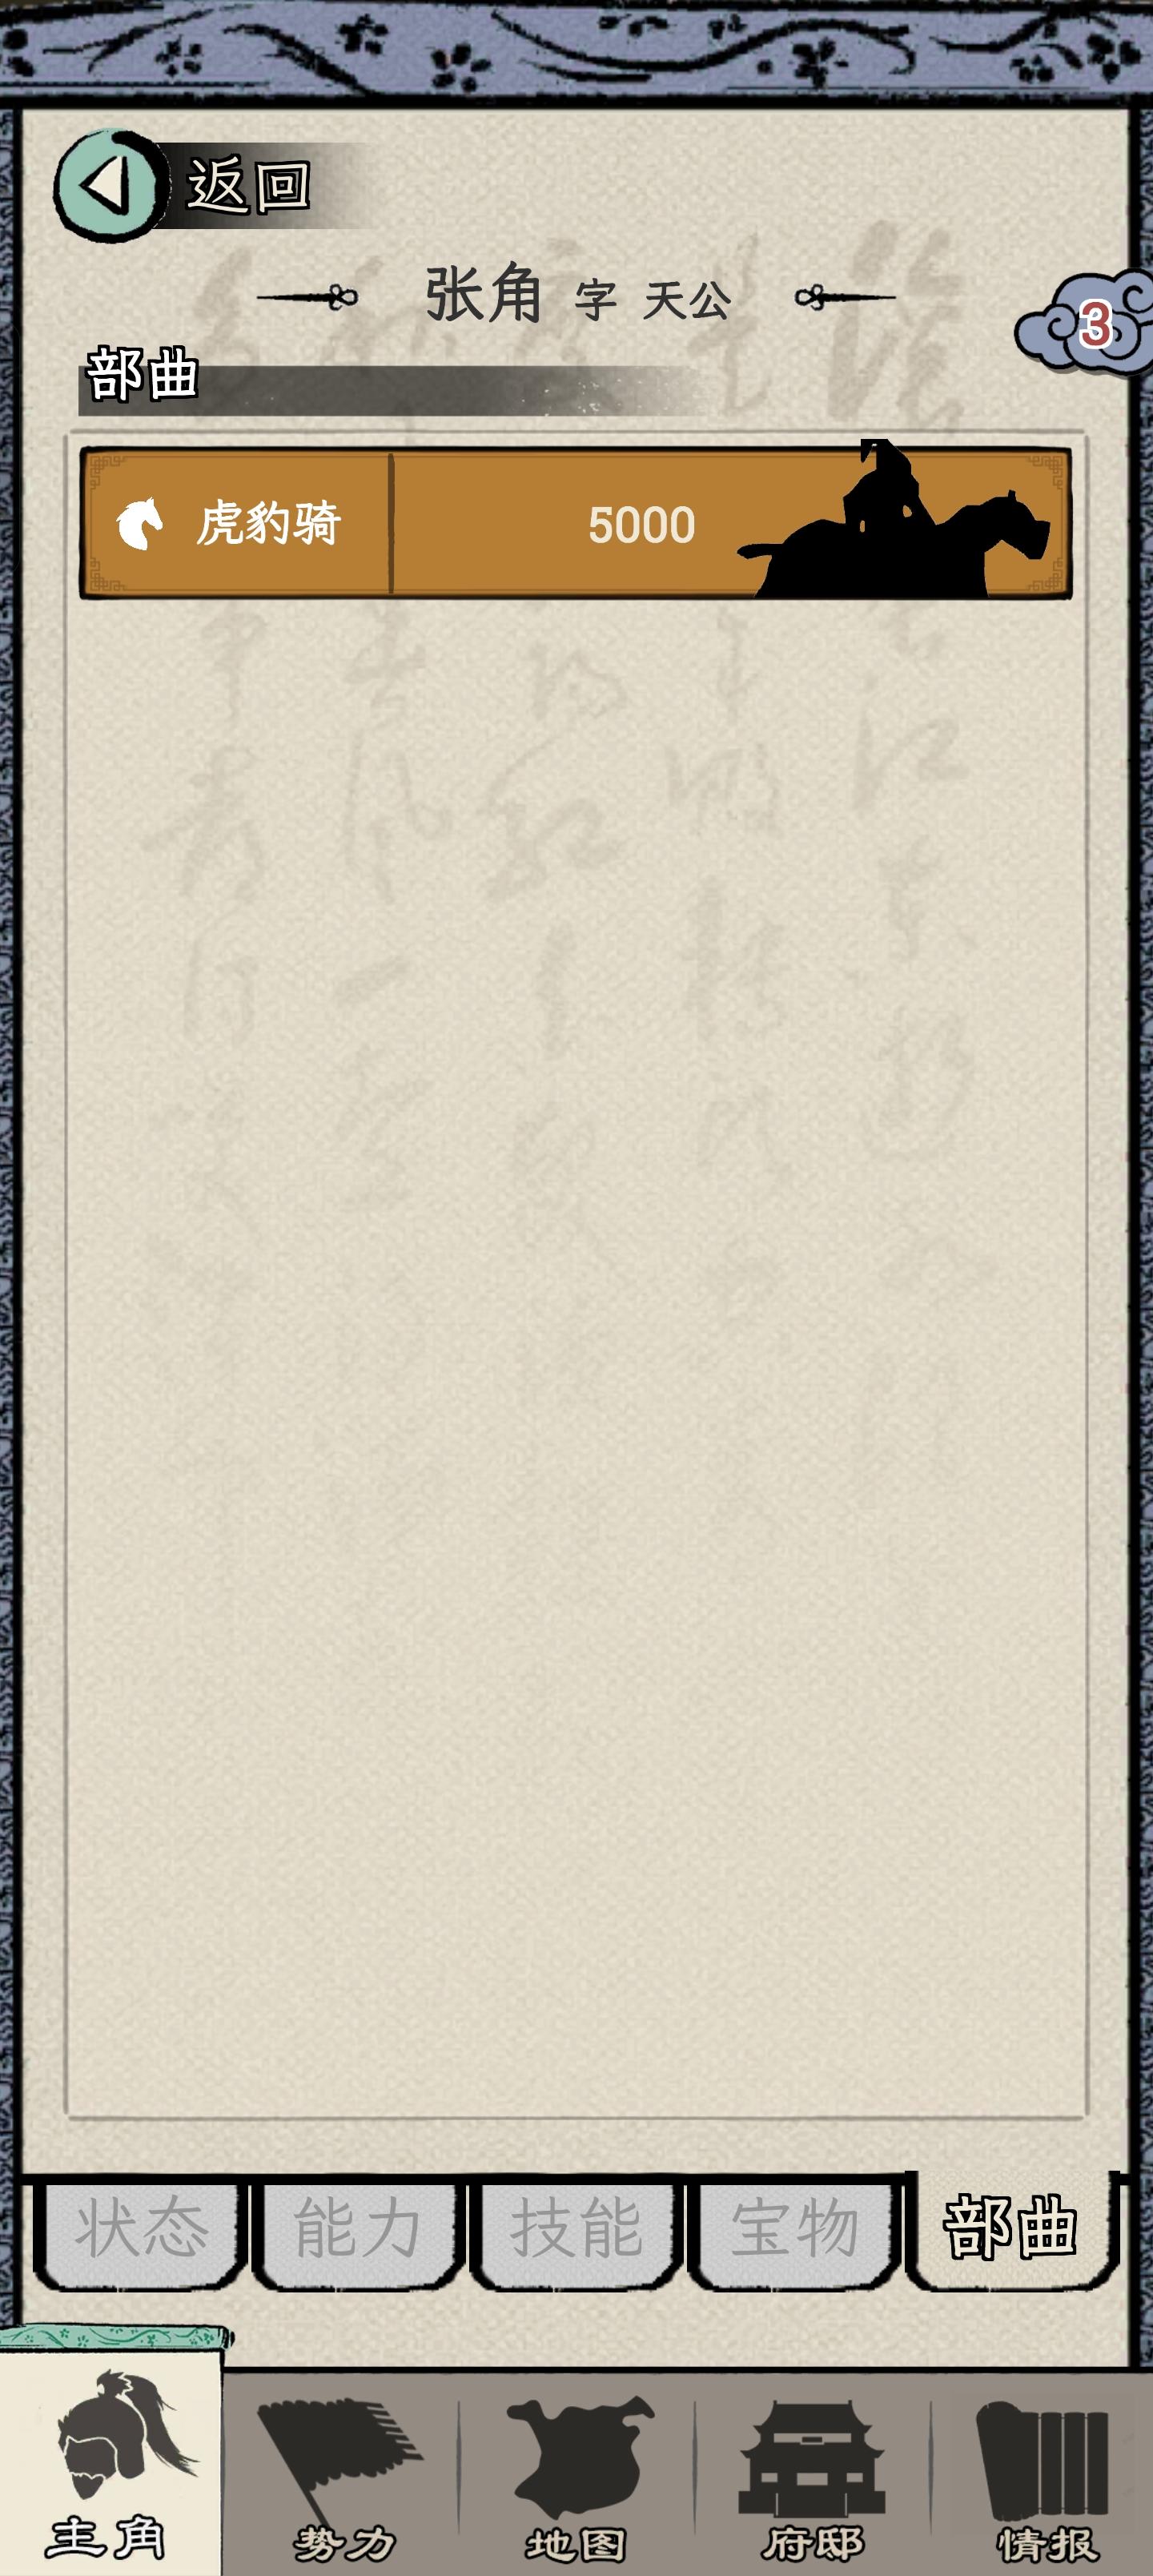 返回
张角 字 天公
3
部曲
虎豹骑 5000
状态 能力 技能 宝物 部曲
主角 势力 地图 府邸 情报